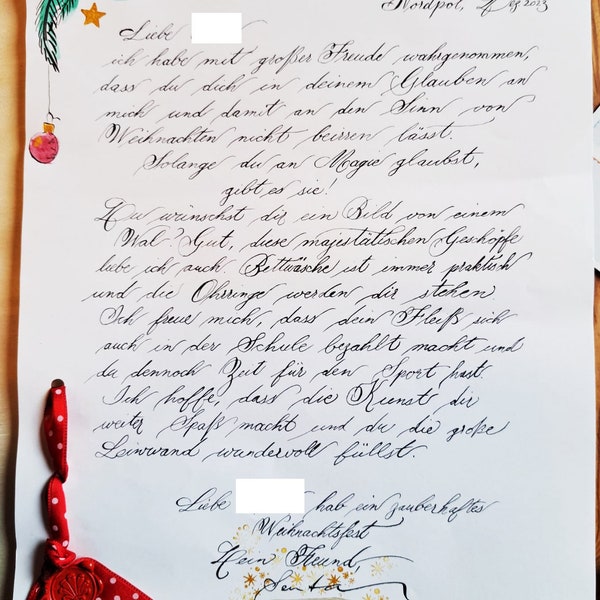 Nordpol, Dez 2023
Liebe
ich habe mit großer Freude wahrgenommen,
dass du dich in deinem Glauben an
mich und damit an den Sinn von
Weihnachten nicht beirren lässt.
Solange du an Magie glaubst,
gibt es sie!
Du wünschst dir ein Bild von einem
Wal? Gut, diese majestätischen Geschöpfe
liebe ich auch. Bettwäsche ist immer praktisch
und die Ohrringe werden dir stehen.
Ich freue mich, dass dein Fleiß sich
auch in der Schule bezahlt macht und
du dennoch Zeit für den Sport hast.
Ich hoffe, dass die Kunst dir
weiter Spaß macht und du die große
Leinwand wundervoll füllst.
Liebe hab ein zauberhaftes
Weihnachtsfest
Dein Freund,
Santa